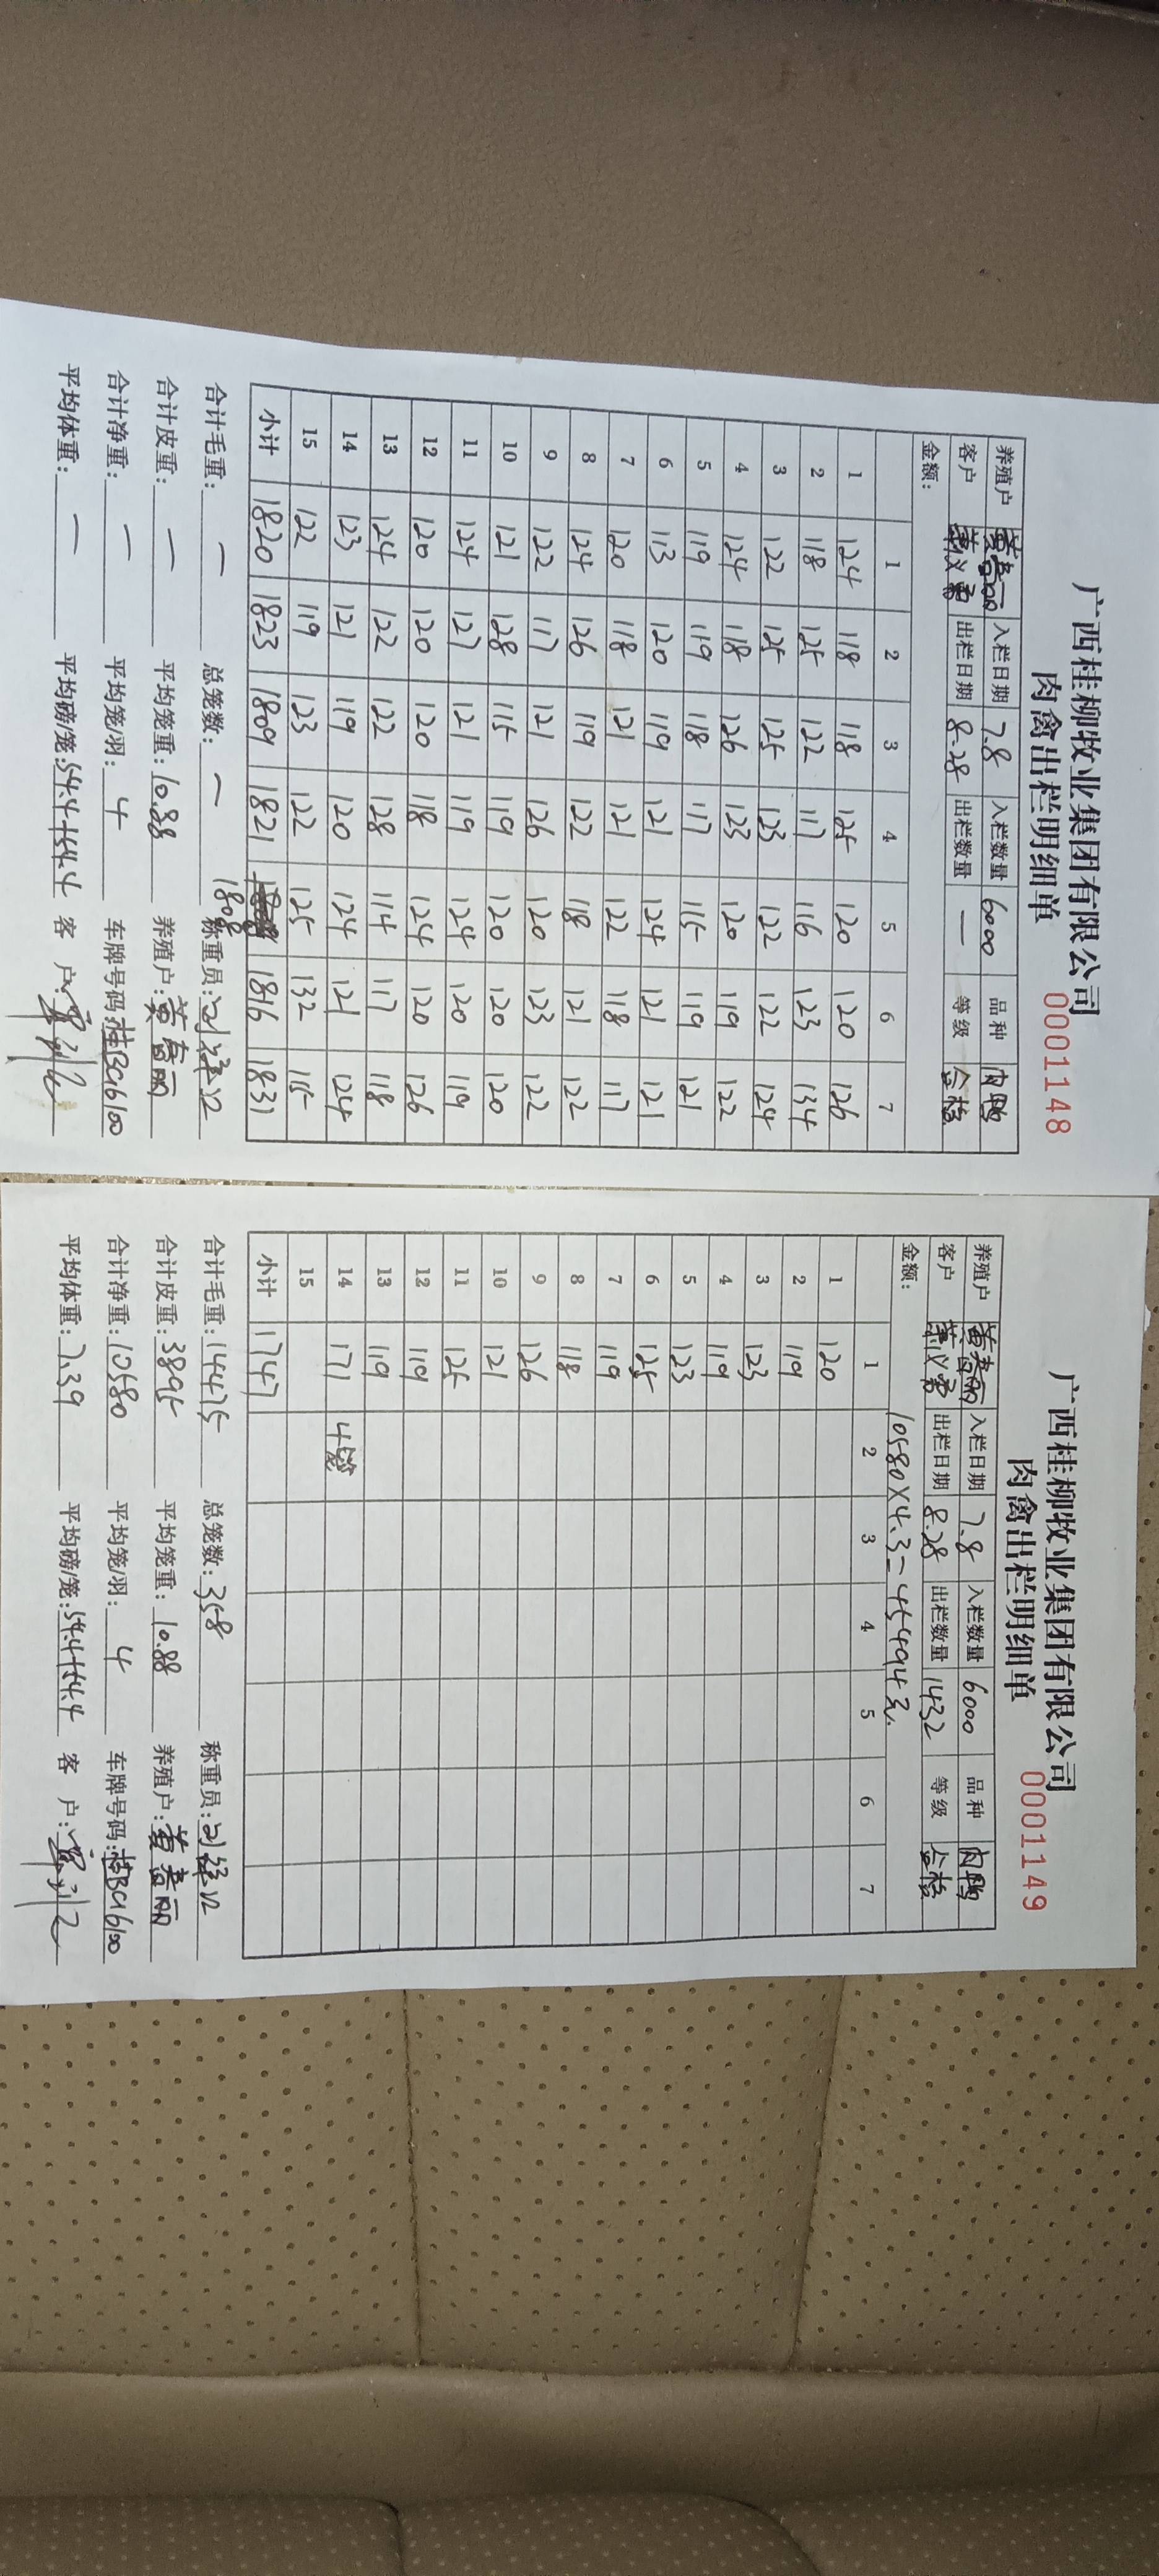 广西桂柳牧业集团有限公司
肉禽出栏明细单 0001148
养殖户 黄春丽 入栏日期 7.8 入栏数量 6000 品种 肉鸭
客户 出栏日期 8.28 出栏数量 — 等级 合格
金额：
1 2 3 4 5 6 7
1 124 118 118 125 120 120 126
2 118 125 122 117 116 123 134
3 122 125 125 123 122 122 124
4 124 118 126 123 120 119 122
5 119 119 118 117 115 119 121
6 113 120 119 121 124 121 121
7 120 118 121 121 122 118 117
8 124 126 119 122 118 121 122
9 122 117 121 126 120 123 122
10 121 128 115 119 120 120 120
11 124 127 121 119 124 120 119
12 120 120 120 118 124 120 126
13 124 122 122 128 114 117 118
14 123 121 119 120 124 121 124
15 122 119 123 122 125 132 115
小计 1820 1823 1809 1821 1808 1816 1831
合计毛重：— 总笼数：— 称重员：
合计皮重：— 平均笼重：10.88 养殖户：黄春丽
合计净重：— 平均笼/羽：4 车牌号码：桂BC16100
平均体重：— 平均磅/笼：54.4+54.4 客 户：
广西桂柳牧业集团有限公司
肉禽出栏明细单 0001149
养殖户 黄春丽 入栏日期 7.8 入栏数量 6000 品种 肉鸭
客户 出栏日期 8.28 出栏数量 1432 等级 合格
金额： 10580×4.3=45494元.
1 2 3 4 5 6 7
1 120
2 119
3 123
4 119
5 123
6 125
7 119
8 118
9 126
10 121
11 125
12 119
13 119
14 171 4笼
15
小计 1747
合计毛重：14475 总笼数：358 称重员：
合计皮重：3895 平均笼重：10.88 养殖户：黄春丽
合计净重：10580 平均笼/羽：4 车牌号码：桂BC16100
平均体重：7.39 平均磅/笼：54.4+54.4 客 户：